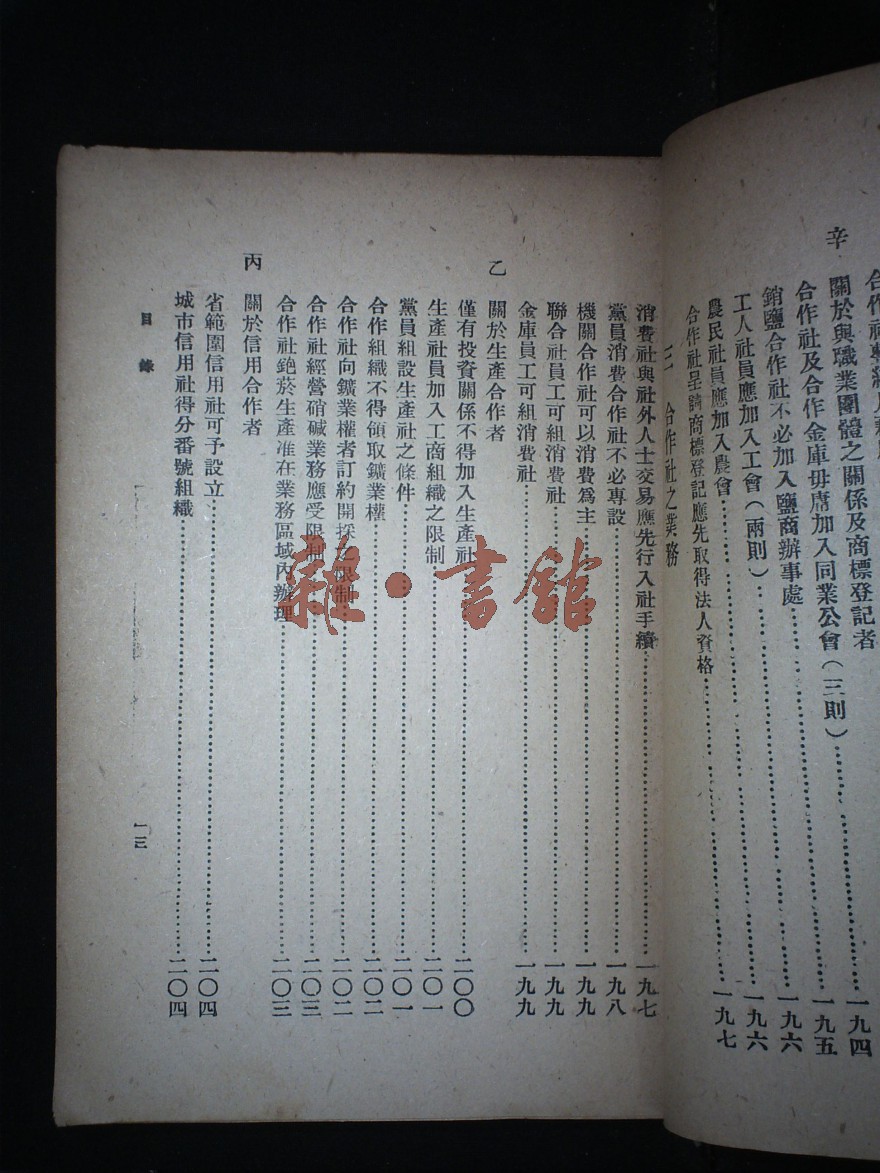 辛 關於與職業團體之關係及商標登記者
合作社及合作金庫毋庸加入同業公會(三則)……一九五
銷鹽合作社不必加入鹽商辦事處……一九六
工人社員應加入工會(兩則)……一九六
農民社員應加入農會……一九七
合作社呈請商標登記應先取得法人資格
三 合作社之業務
消費社與社外人士交易應先行入社手續……一九七
黨員消費合作社不必專設……一九八
機關合作社可以消費為主……一九九
聯合社員工可組消費社……一九九
金庫員工可組消費社……一九九
乙 關於生產合作者
僅有投資關係不得加入生產社……二〇〇
生產社員加入工商組織之限制……二〇一
黨員組設生產社之條件……二〇一
合作組織不得領取鑛業權……二〇二
合作社向鑛業權者訂約開採之限制……二〇二
合作社經營硝碱業務應受限制……二〇三
合作社絕菸生產准在業務區域內辦理……二〇三
丙 關於信用合作者
省範圍信用社可予設立……二〇四
城市信用社得分番號組織……二〇四
目錄
一三
雜·書館